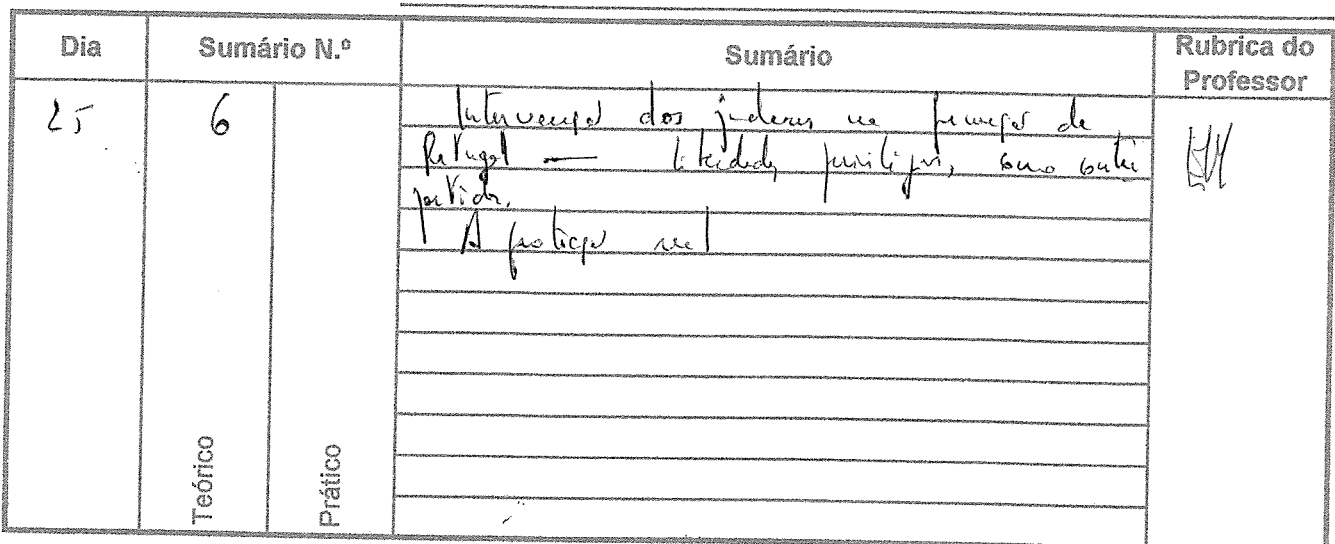 Dia Sumário N.º Sumário Rubrica do Professor
25 6
Intervenção dos judeus na formação de
Portugal — liberdades, privilégios, como contra
partida.
A proteção real
Teórico Prático